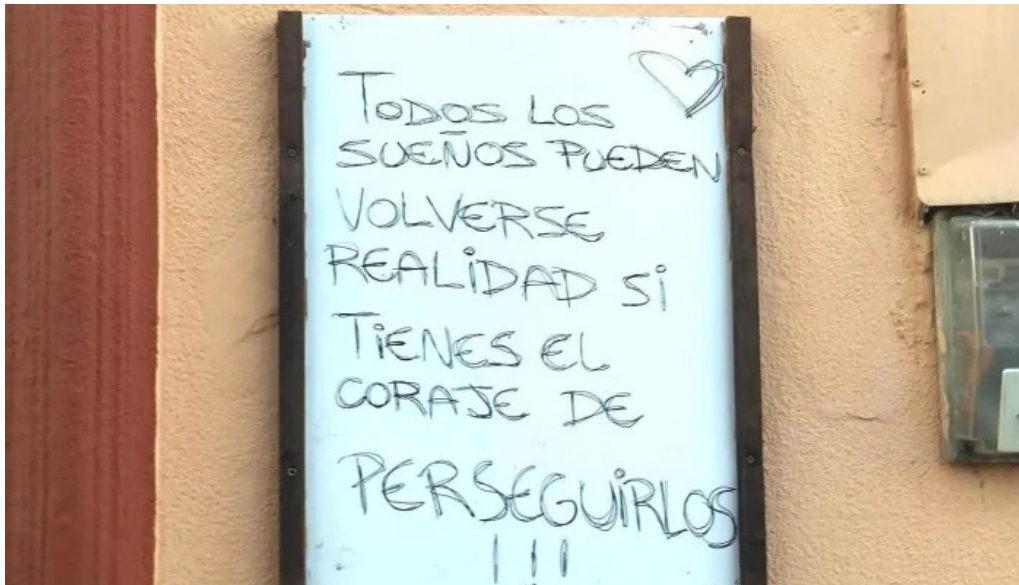 TODOS LOS
SUEÑOS PUEDEN
VOLVERSE
REALiDAD Si
TiENES EL
CORAJE DE
PERSEGUiRLOS
!!!